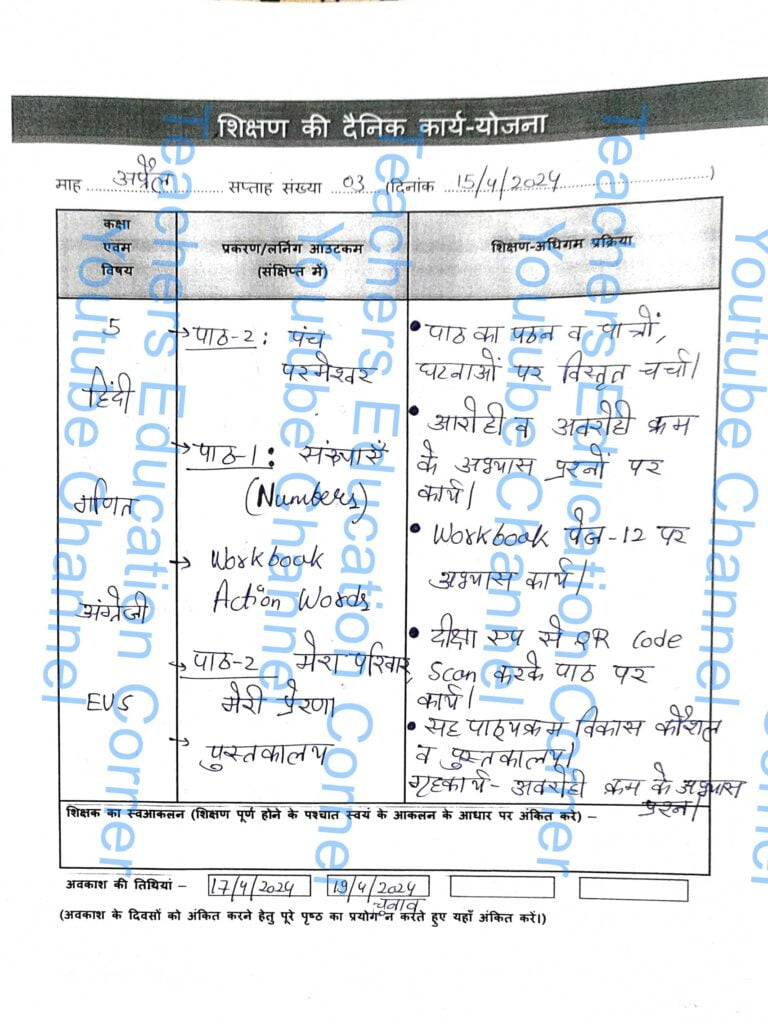 शिक्षण की दैनिक कार्य-योजना
माह अप्रैल सप्ताह संख्या 03 (दिनांक 15/4/2024)
कक्षा एवम विषय
प्रकरण/लर्निंग आउटकम (संक्षिप्त में)
शिक्षण-अधिगम प्रक्रिया
5
हिंदी
→ पाठ-2 : पंच
परमेश्वर
• पाठ का पठन व पात्रों,
घटनाओं पर विस्तृत चर्चा।
गणित
→ पाठ-1 : संख्याएँ
(Numbers)
• आरोही व अवरोही क्रम
के अभ्यास प्रश्नों पर
कार्य।
अंग्रेजी
→ Workbook
Action Words
• Workbook पेज-12 पर
अभ्यास कार्य।
EVS
→ पाठ-2 मेरा परिवार,
मेरी प्रेरणा
• दीक्षा एप से QR Code
Scan करके पाठ पर
कार्य।
→ पुस्तकालय
• सह पाठ्यक्रम विकास कौशल
व पुस्तकालय।
गृहकार्य - अवरोही क्रम के अभ्यास
प्रश्न।
शिक्षक का स्वआकलन (शिक्षण पूर्ण होने के पश्चात स्वयं के आकलन के आधार पर अंकित करे) –
अवकाश की तिथियां – 17/4/2024 19/4/2024
चुनाव
(अवकाश के दिवसों को अंकित करने हेतु पूरे पृष्ठ का प्रयोग न करते हुए यहाँ अंकित करें।)
Teachers Education Corner
Youtube Channel
Teachers Education Corner
Youtube Channel
Teachers Education Corner
Youtube Channel